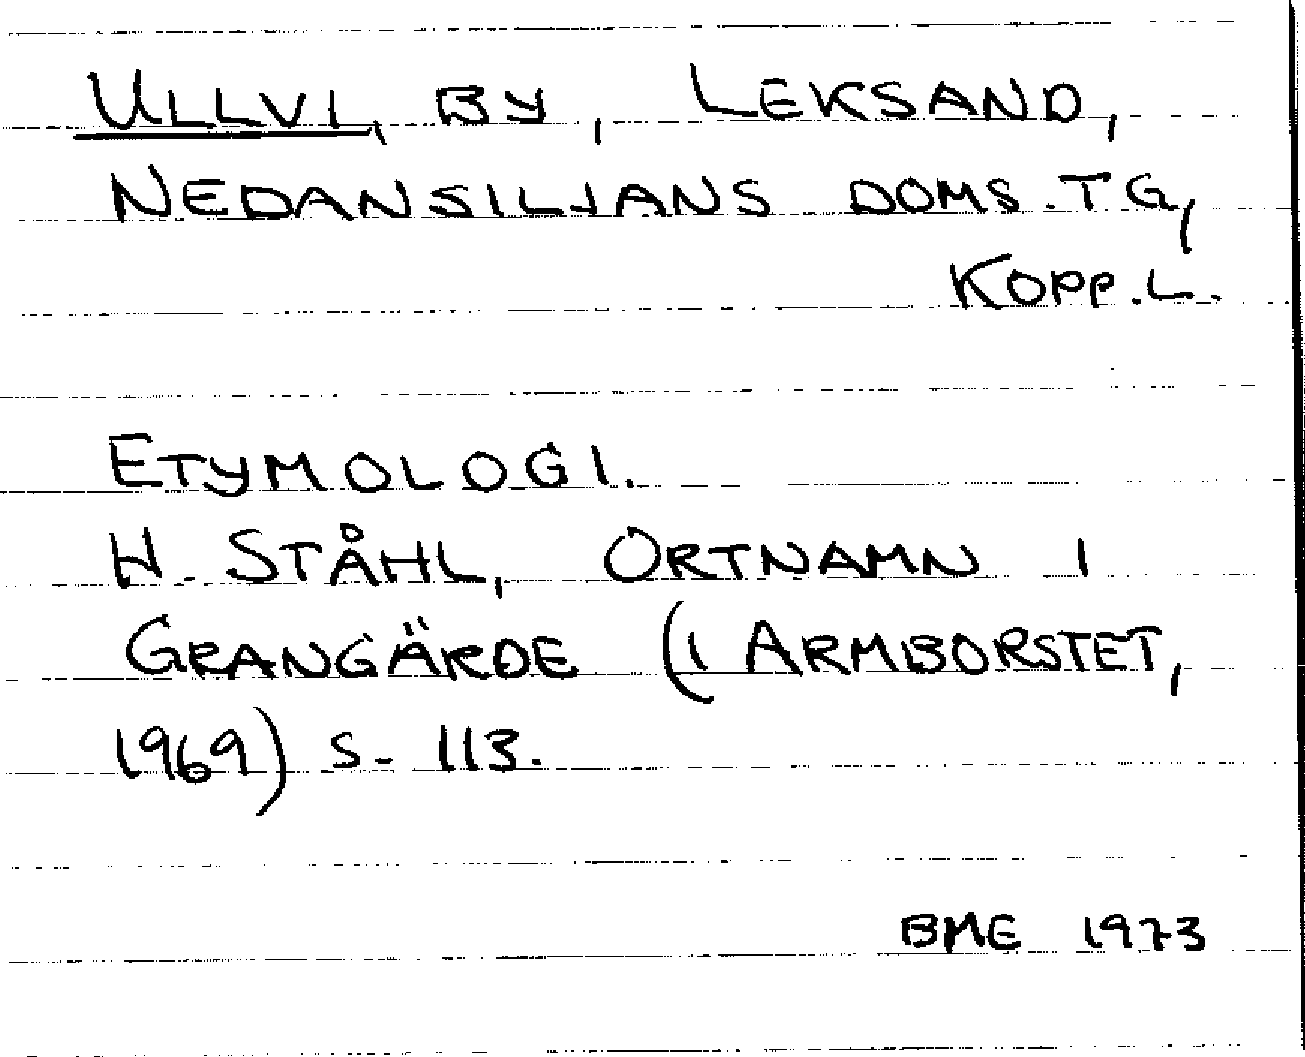 ULLVI, BY, LEKSAND,
NEDANSILJANS DOMS.TG,
KOPP.L.
ETYMOLOGI.
H. STÅHL, ORTNAMN I
GRANGÄRDE (I ARMBORSTET,
1969) S. 113.
BME 1973